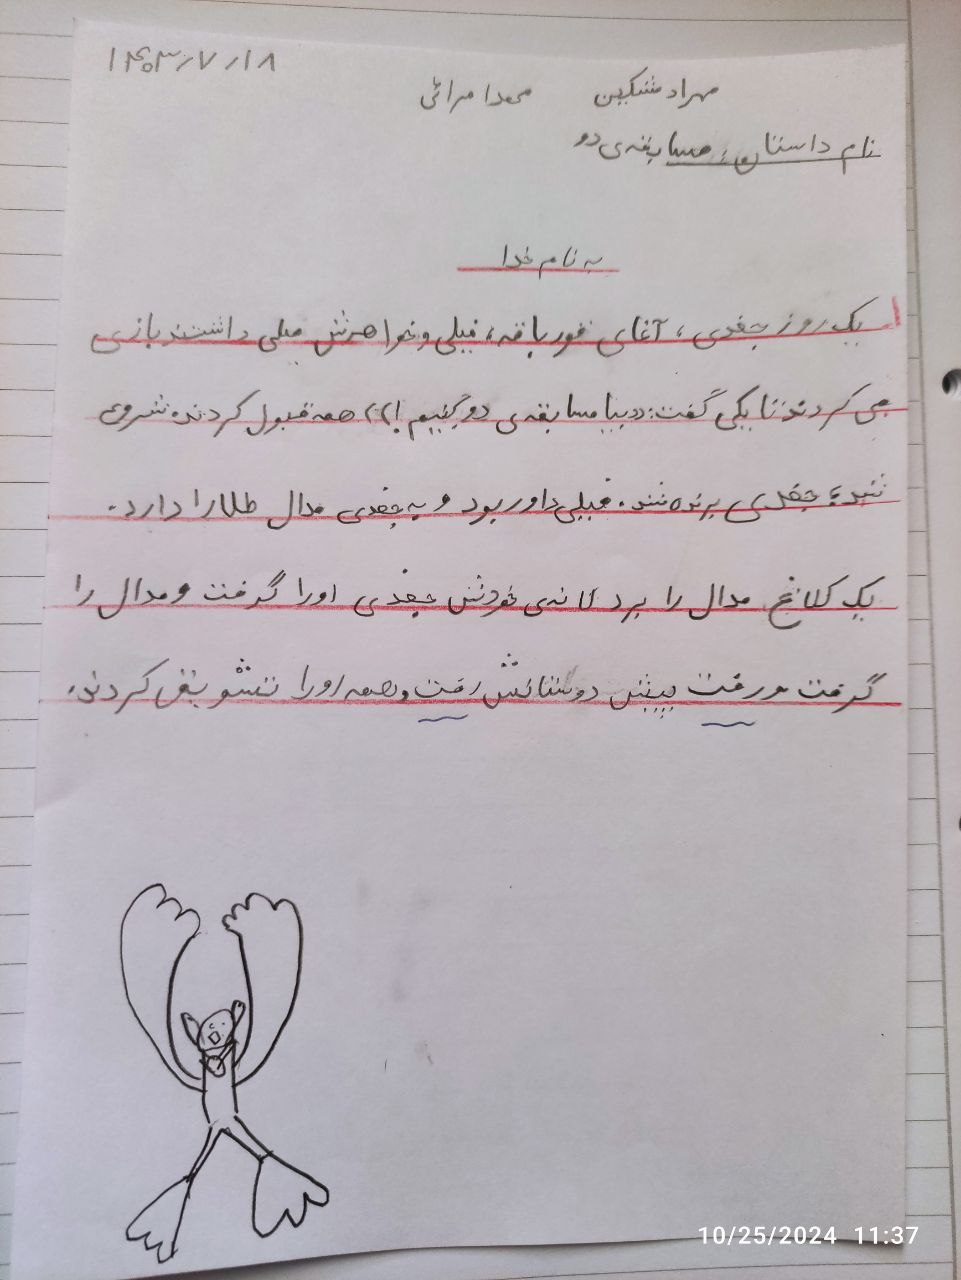 ۱۴۰۳/۷/۱۸
مهراد مشکین محمدا مرائی
نام داستان: مسابقه‌ی دو
به نام خدا
یک روز جغدی، آغای قورباقه، فیلی و خواهرش میلی داشتند بازی
می کردند تا یکی گفت: ((بیا مسابقه‌ی دو کنیم!)) همه قبول کردند شروی
شد، جغدی برنده شد. فیلی داور بود و به جغدی مدال طلا را دارد.
یک کلاغ مدال را برد لانه‌ی خودش جغدی اورا گرفت و مدال را
گرفت و رفت پیش دوستانش رفت و همه اورا تشویق کردند.
10/25/2024 11:37